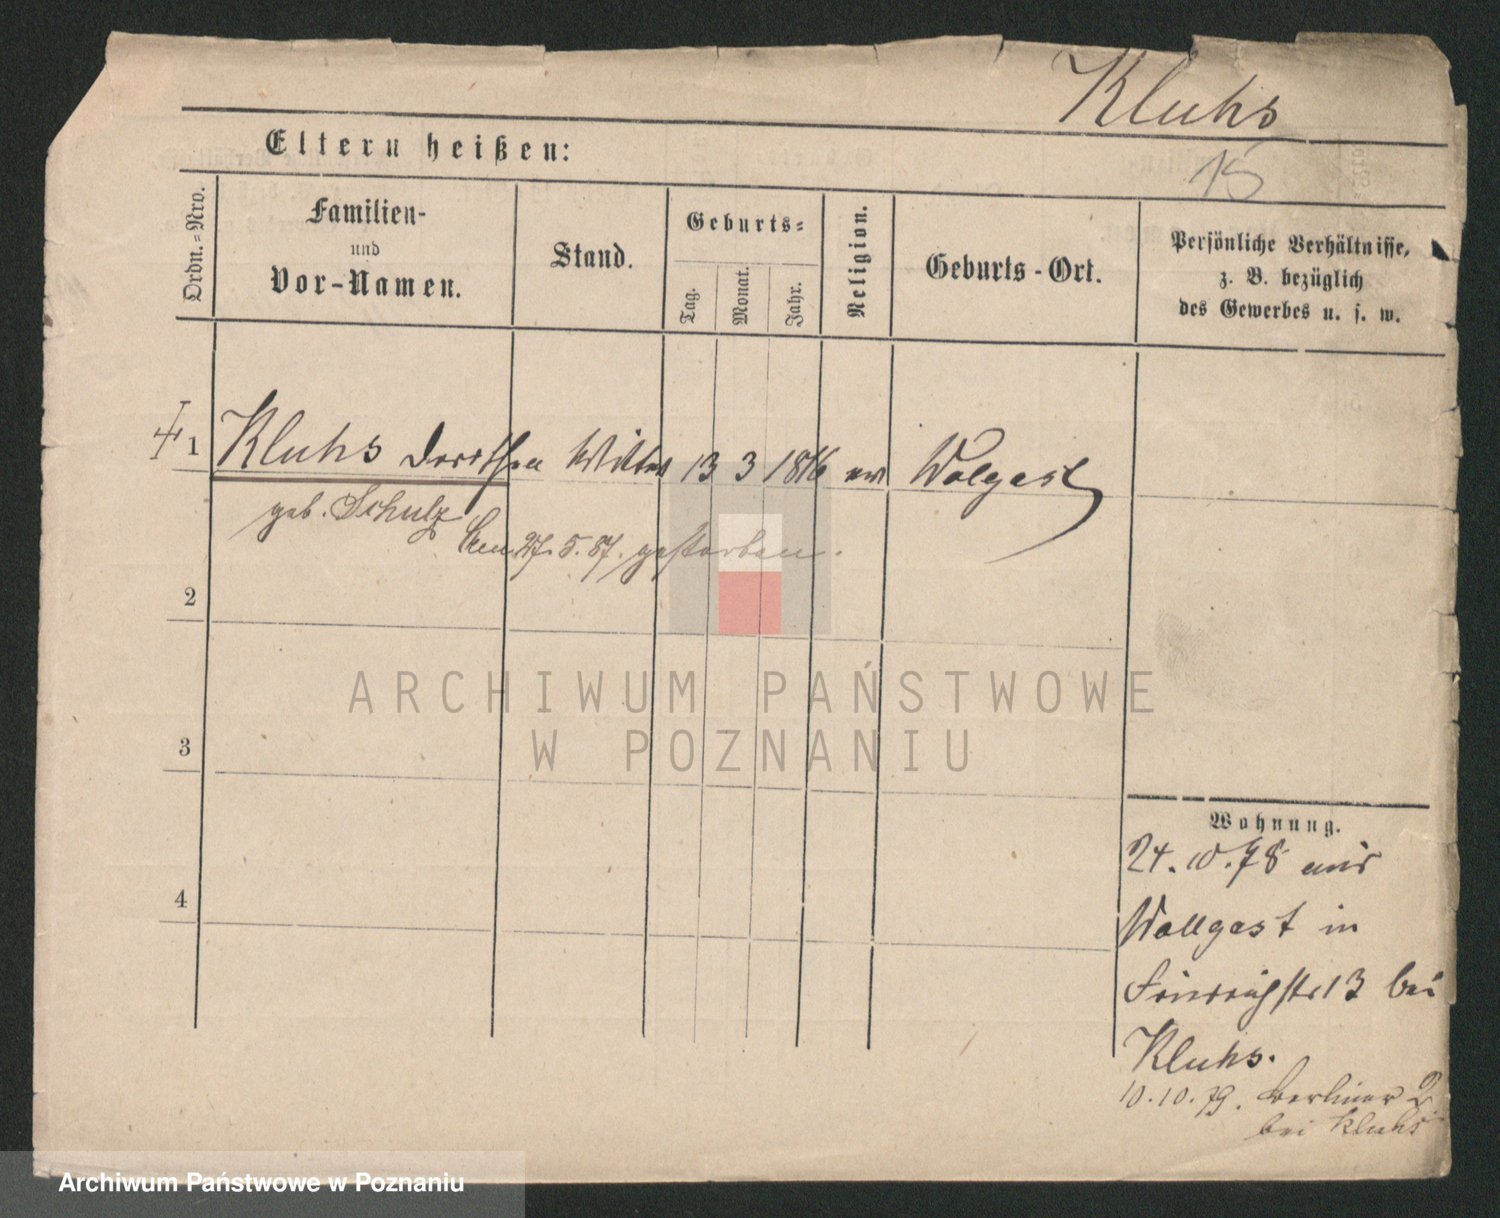 Kluhs
15
Eltern heißen:
Ordn.=Nro.
Familien-
und
Vor-Namen.
Stand.
Geburts=
Tag.
Monat.
Jahr.
Religion.
Geburts-Ort.
Persönliche Verhältnisse,
z. B. bezüglich
des Gewerbes u. s. w.
1 Kluhs Dorothea 13 3 1816 ev Wolgast
geb. Schulz
27. 5. 87. gestorben.
2
ARCHIWUM PAŃSTWOWE
W POZNANIU
3
4
Wohnung.
24. 10. 78 aus
Wollgast in
Friedrichstr 13 bei
Kluhs.
10. 10. 79. Berliner 2
bei Kluhs
Archiwum Państwowe w Poznaniu